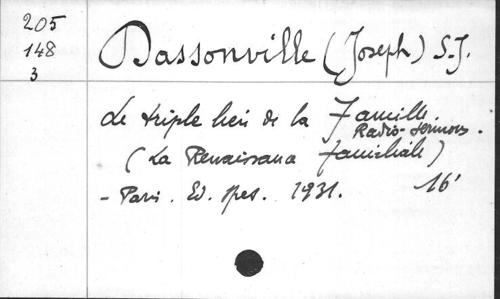 205
148
3
Dassonville (Joseph) S.J.
Le triple lien de la Famille.
Radio-sermons.
(La Renaissance familiale)
- Paris. Ed. Spes. 1931. 16°